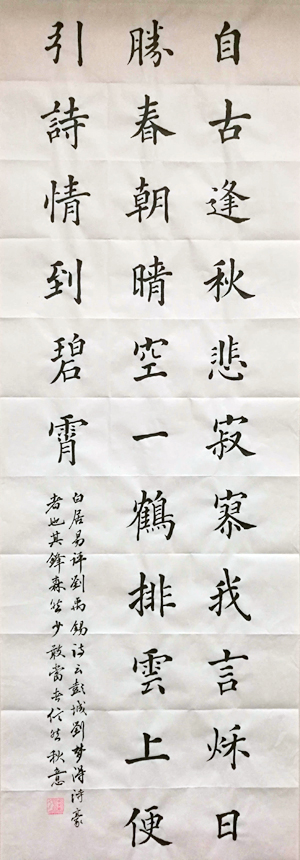 自古逢秋悲寂寥我言秌日
勝春朝晴空一鶴排雲上便
引詩情到碧霄
白居易評劉禹錫詩云彭城劉夢得詩豪
者也其鋒森然少敢當者信然秋意